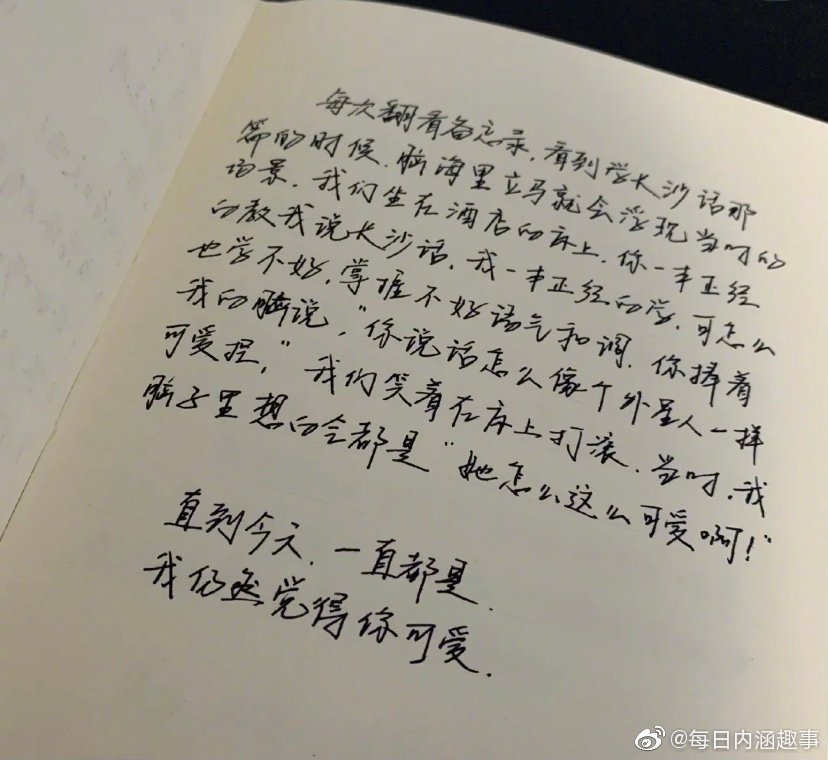 每次翻看备忘录,看到学长沙话那
篇的时候,脑海里立马就会浮现当时的
场景,我们坐在酒店的床上,你一本正经
的教我说长沙话,我一本正经的学,可怎么
也学不好,掌握不好语气和调,你捧着
我的脸说,“你说话怎么像个外星人一样
可爱捏,”我们笑着在床上打滚,当时,我
脑子里想的全都是“她怎么这么可爱啊!”
直到今天,一直都是.
我仍然觉得你可爱.
@每日内涵趣事